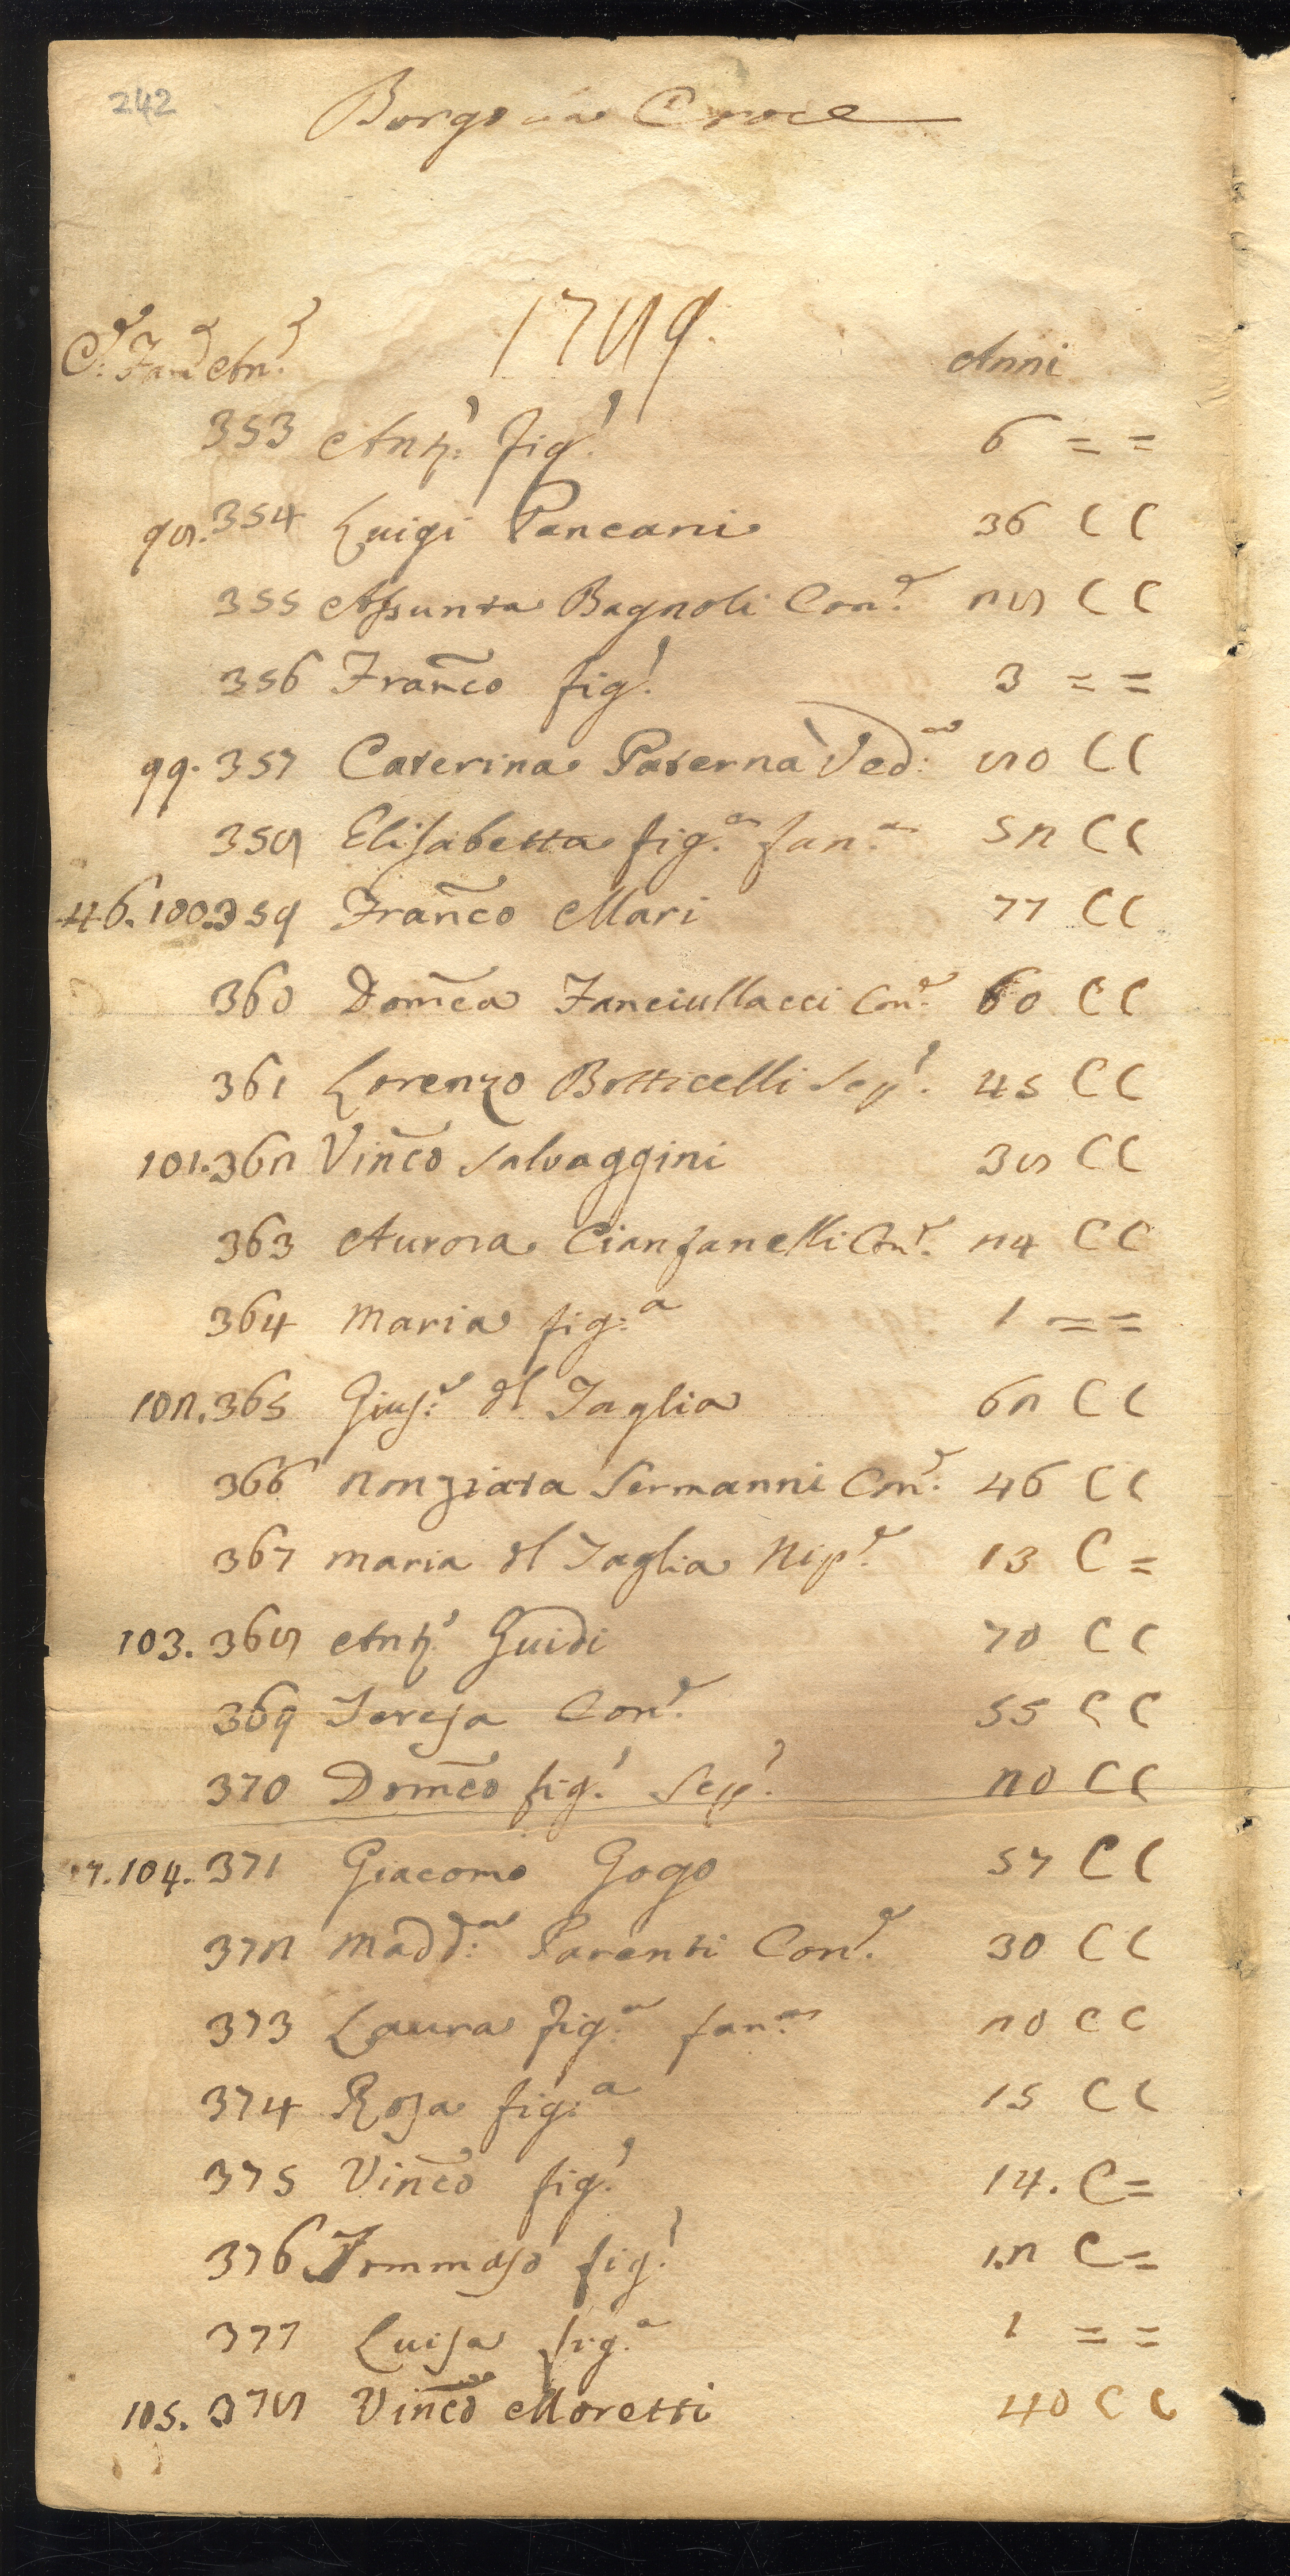 242
Borgo Croce
1789.
C.e Fam.e An.e Anni
353 Ant.o fig.o 6 = =
98. 354 Luigi Pancani 36 C C
355 Assunta Bagnoli Con.e 28 C C
356 Franc̃o fig.o 3 = =
99. 357 Caterina Paterna Ved.a 80 C C
358 Elisabetta fig.a fan.a 52 C C
46. 100. 359 Franc̃o Mari 77 C C
360 Dom̃ca Fanciullacci Con.e 60 C C
361 Lorenzo Botticelli Sep.o 45 C C
101. 362 Vinc̃o Salvaggini 38 C C
363 Aurora Cianfanelli Con.e 24 C C
364 Maria fig.a 1 = =
102. 365 Gius.e dl Taglia 62 C C
366 Nonziata Sermanni Con.e 46 C C
367 Maria dl Taglia Nip.e 13 C =
103. 368 Ant.o Guidi 70 C C
369 Teresa Con.e 55 C C
370 Dom̃co fig.o Sep.o 20 C C
47. 104. 371 Giacomo Gogo 57 C C
372 Madd.a Parenti Con.e 30 C C
373 Laura fig.a fan.a 20 C C
374 Rosa fig.a 15 C C
375 Vinc̃o fig.o 14. C =
376 Tommaso fig.o 12 C =
377 Luisa fig.a 1 = =
105. 378 Vinc̃o Moretti 40 C C